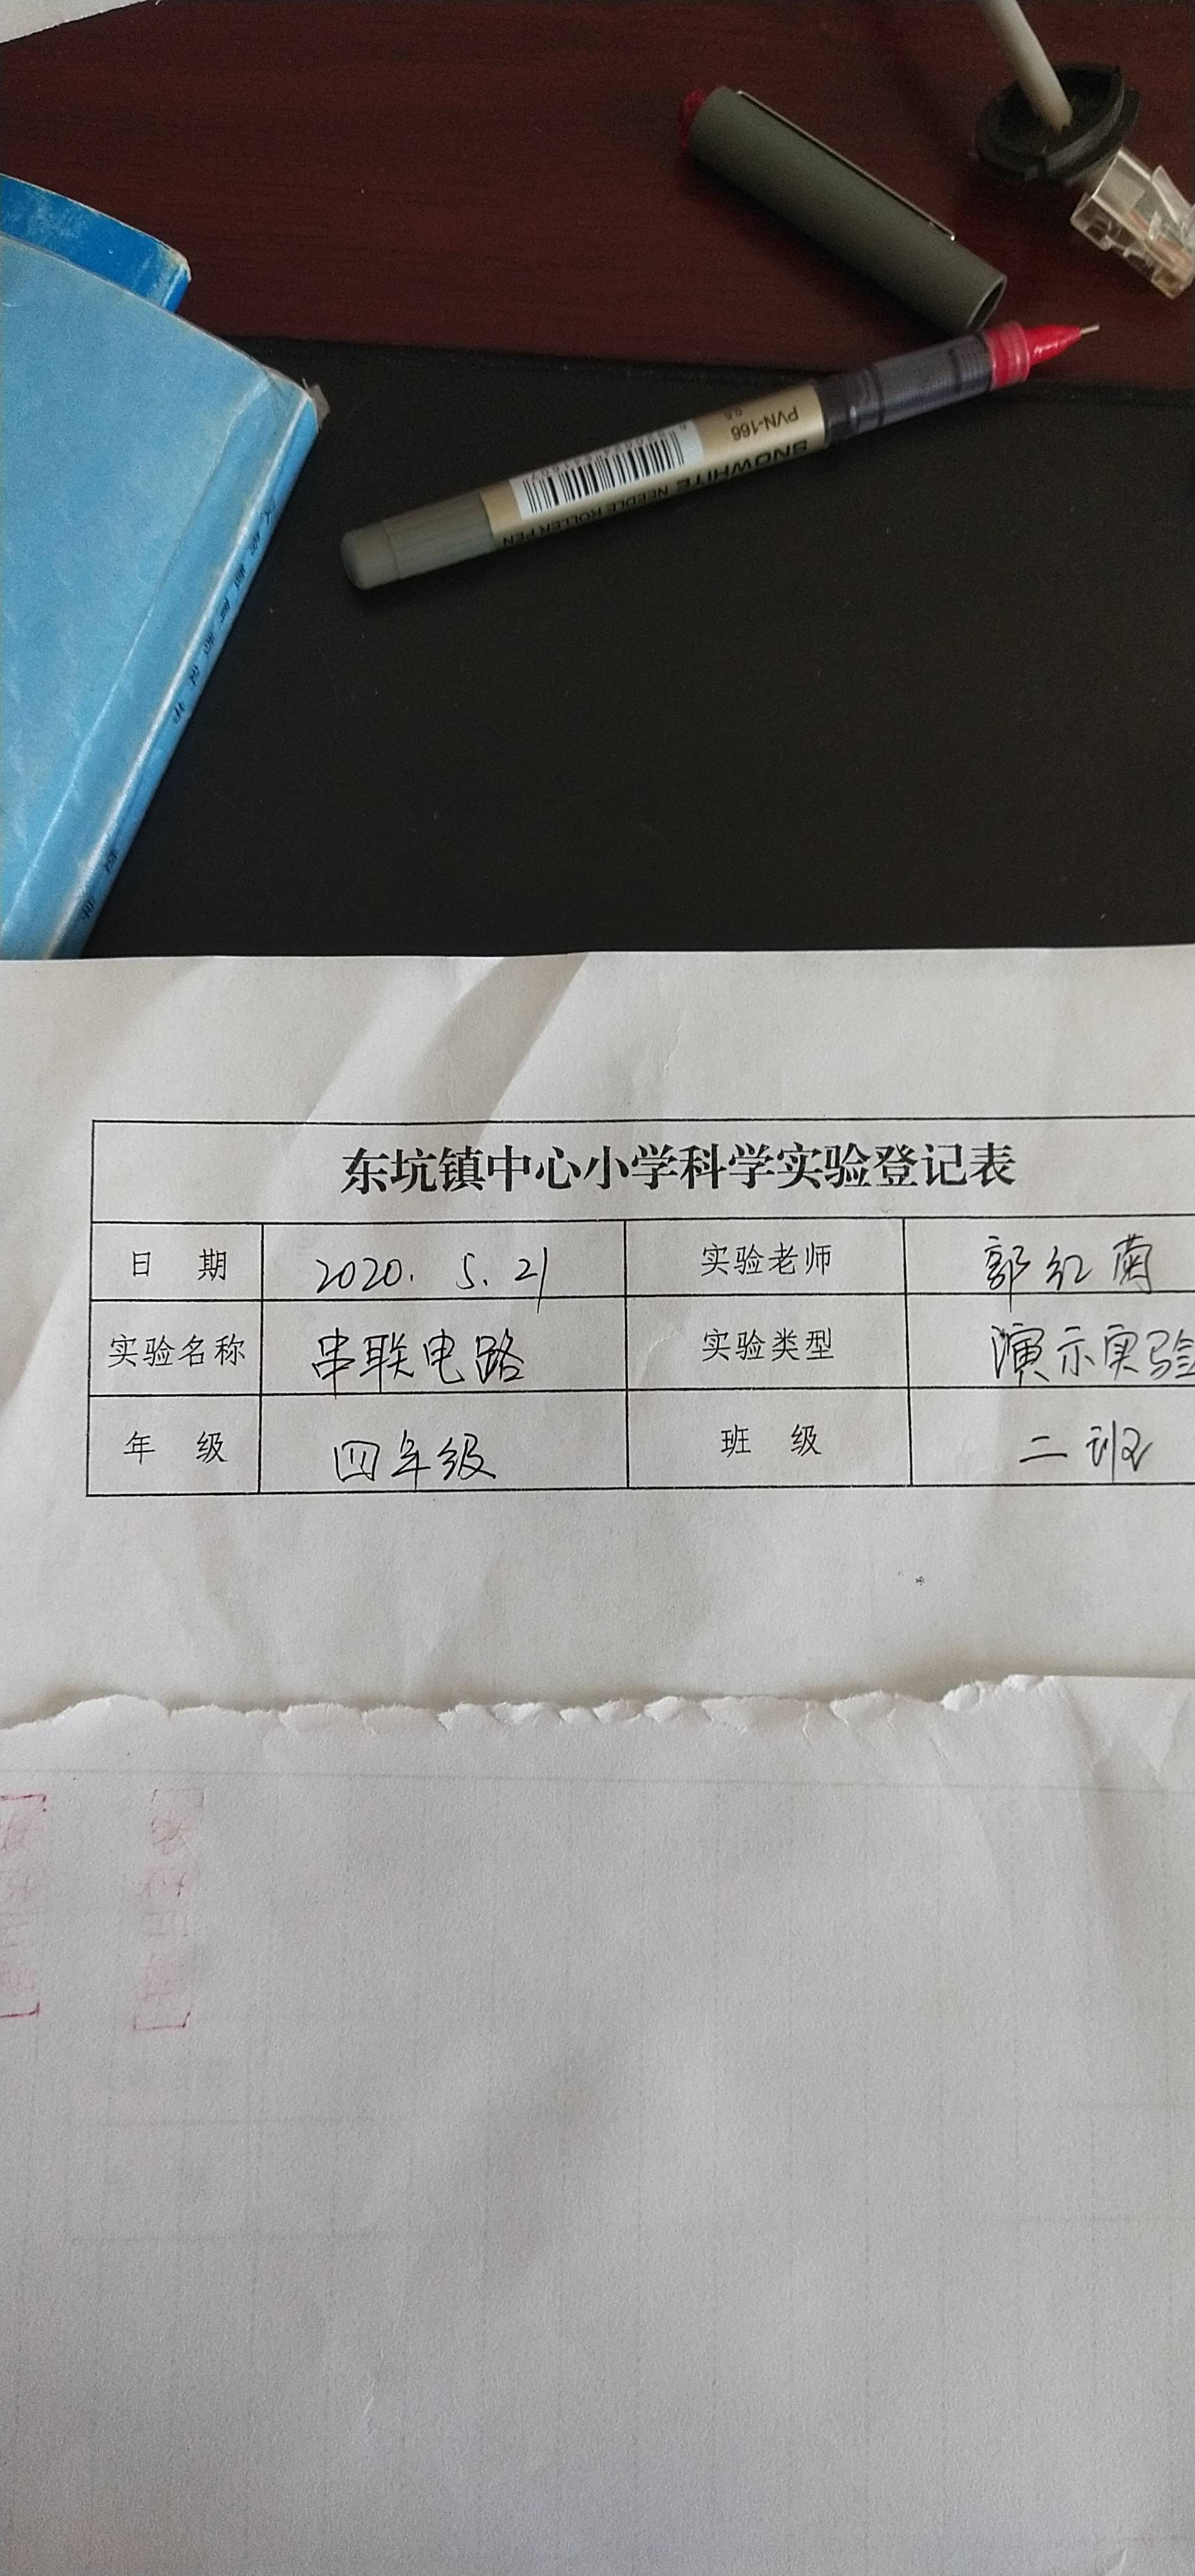 PVN-166
0.5
SNOWHITE NEEDLE ROLLER PEN
东坑镇中心小学科学实验登记表
日 期 2020. 5. 21 实验老师 郭红菊
实验名称 串联电路 实验类型 演示实验
年 级 四年级 班 级 二班